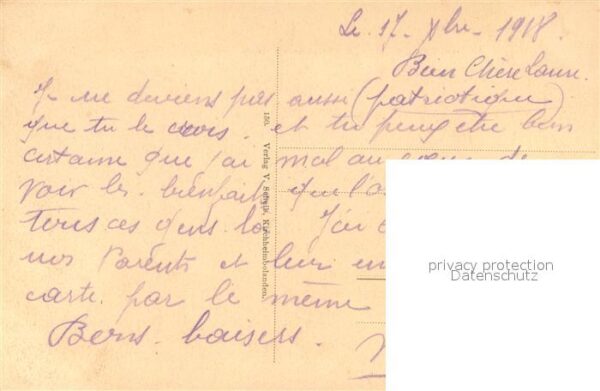 Le 17 - Xbre - 1918.
Bien Chère Laure.
Je ne deviens pas aussi (patriotique)
que tu le crois. et tu peux être bien
certaine que j'ai mal au de
voir les bienfaits que l'on
tous ces gens là J'ai
nos Parents et leur en
carte par le même
Bons baisers.
1305 Verlag V. Kirchheimbolanden.
privacy protection
Datenschutz